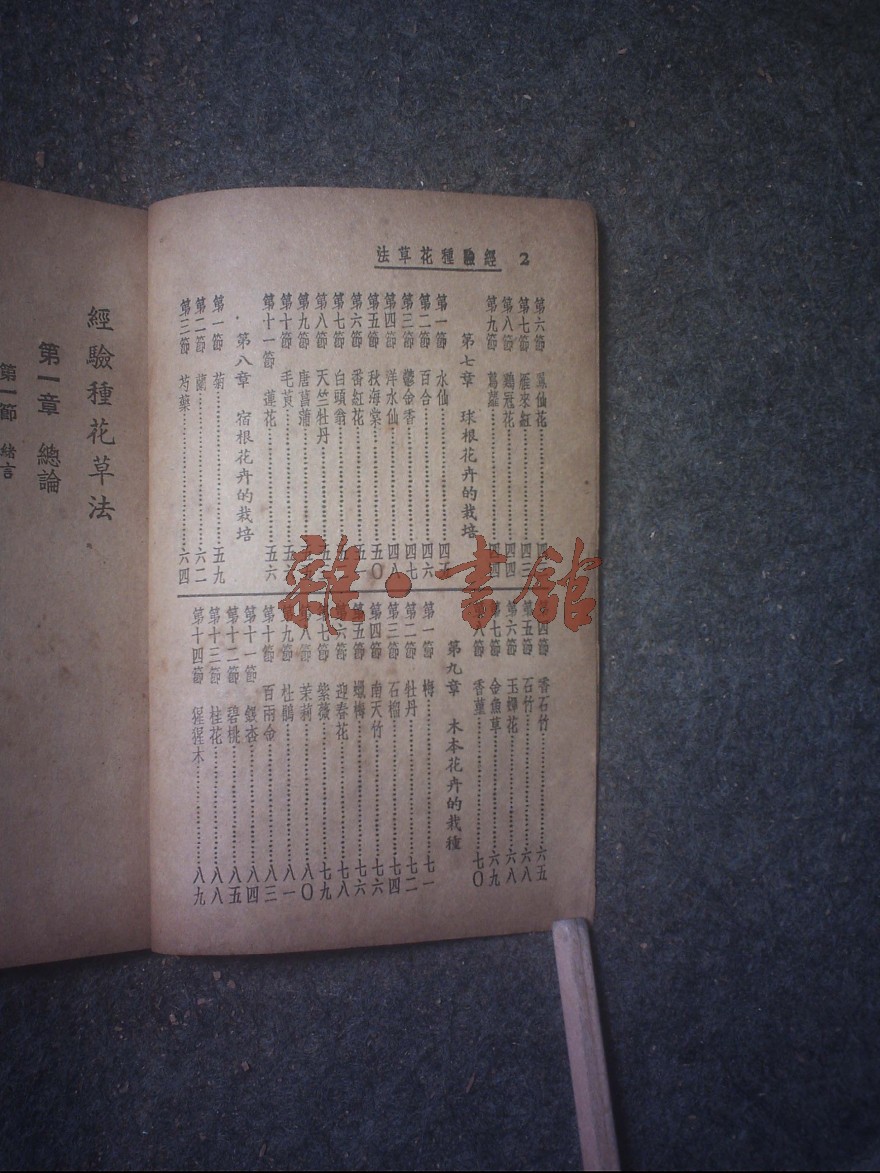 經驗種花草法 2
第六節 鳳仙花
第七節 雁來紅 四三
第八節 鷄冠花 四四
第九節 蔦蘿 四四
第七章 球根花卉的栽培
第一節 水仙
第二節 百合 四六
第三節 鬱金香 四七
第四節 洋水仙 四八
第五節 秋海棠 五〇
第六節 番紅花
第七節 白頭翁
第八節 天竺牡丹
第九節 唐菖蒲
第十節 毛茛
第十一節 蓮花 五六
第八章 宿根花卉的栽培
第一節 菊 五九
第二節 蘭 六二
第三節 芍藥 六四
第四節 香石竹 六五
第五節 石竹 六八
第六節 玉蟬花 六八
第七節 金魚草 六九
第八節 香堇 七〇
第九章 木本花卉的栽種
第一節 梅 七一
第二節 牡丹 七二
第三節 石榴 七四
第四節 南天竹 七六
第五節 蠟梅 七六
第六節 迎春花 七八
第七節 紫薇 七九
第八節 茉莉 八〇
第九節 杜鵑 八一
第十節 百兩金 八三
第十一節 銀杏 八四
第十二節 碧桃 八五
第十三節 桂花 八八
第十四節 猩猩木 八九
經驗種花草法
第一章 總論
第一節 緒言
雜·書館